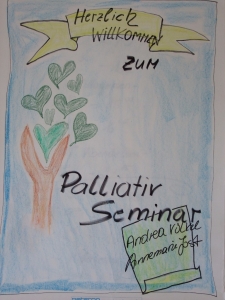 Herzlich
Willkommen
zum
Palliativ
Seminar
Andrea
Annemarie Jost